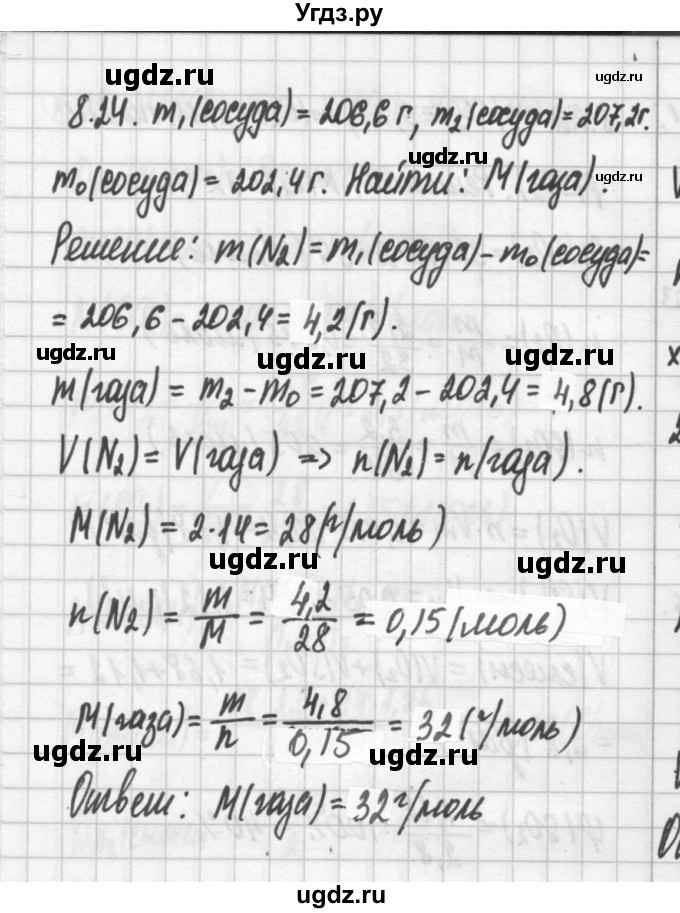 Угдз.ру
8.24. m₁(сосуда) = 206,6 г, m₂(сосуда) = 207,2г.
m₀(сосуда) = 202,4г. Найти: M(газа).
Решение: m(N₂) = m₁(сосуда) - m₀(сосуда) =
= 206,6 - 202,4 = 4,2(г).
m(газа) = m₂ - m₀ = 207,2 - 202,4 = 4,8(г).
V(N₂) = V(газа) => n(N₂) = n(газа).
M(N₂) = 2·14 = 28(г/моль)
n(N₂) = m/M = 4,2/28 = 0,15(моль)
M(газа) = m/n = 4,8/0,15 = 32(г/моль)
Ответ: M(газа) = 32г/моль
ugdz.ru
ugdz.ru
ugdz.ru
ugdz.ru
ugdz.ru
ugdz.ru
ugdz.ru
ugdz.ru
ugdz.ru
ugdz.ru
ugdz.ru
ugdz.ru
ugdz.ru